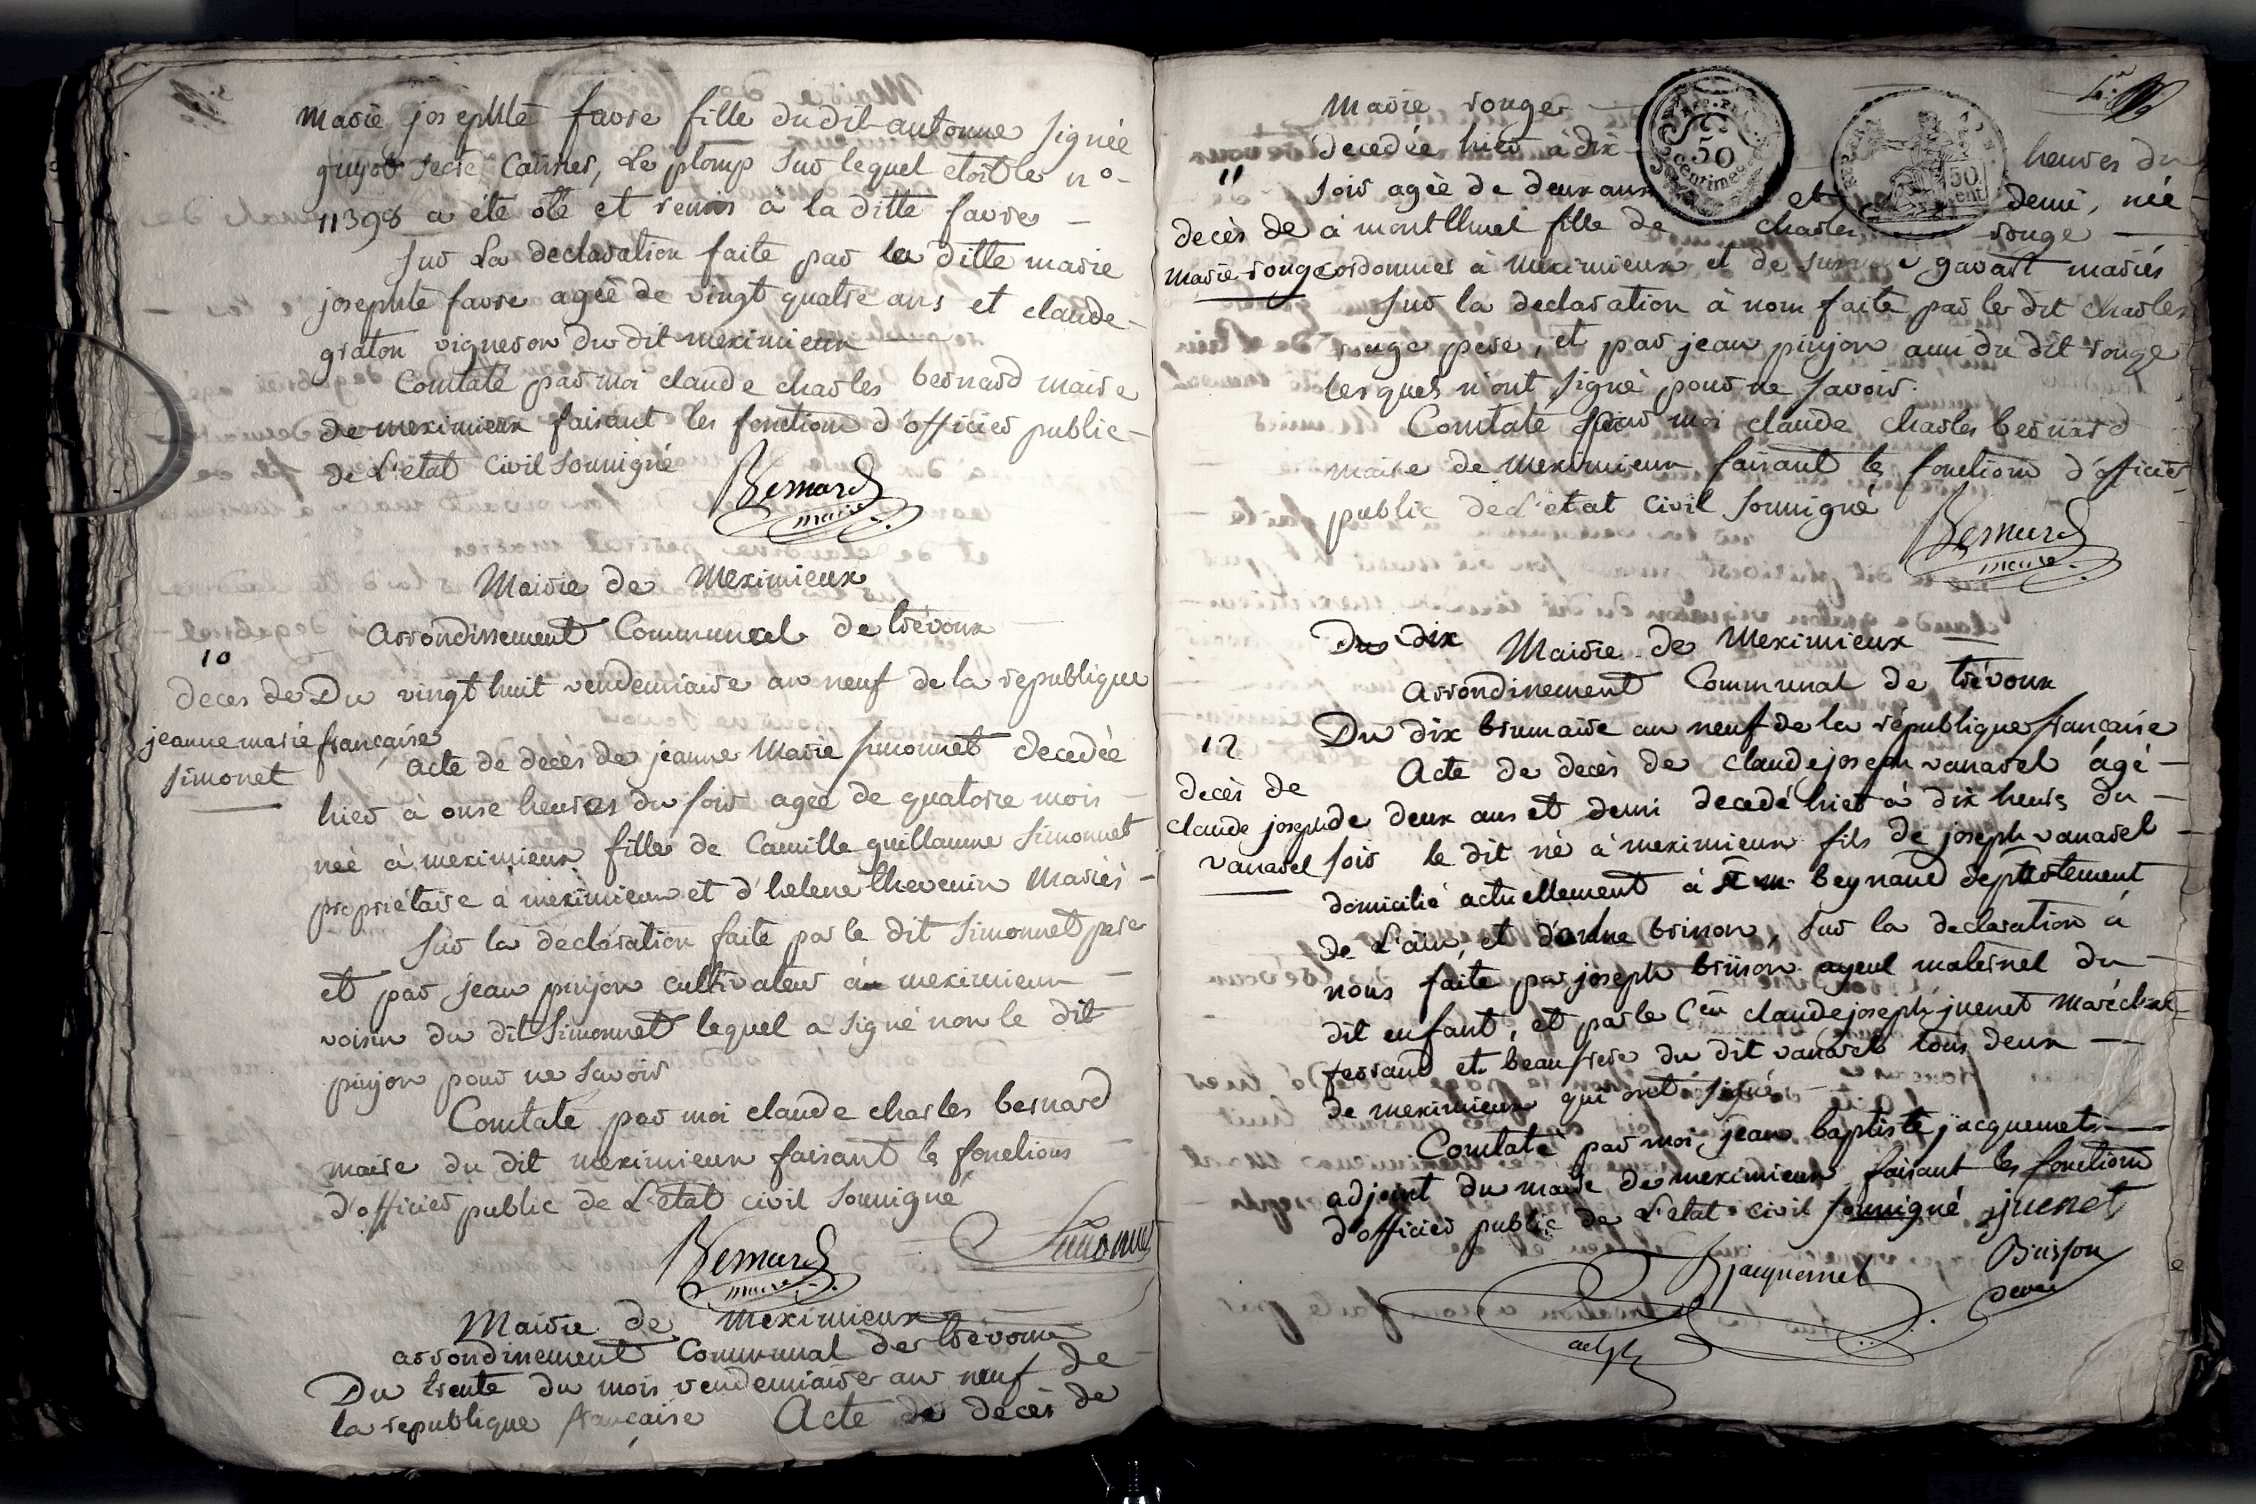 marie josephte favre fille dudit antoinne signée
guyot secre Cannes, Le plomp sur lequel etoit le no
11398 a été oté et remis à la ditte favre
sur La declaration faite par la ditte marie
josephte favre agée de vingt quatre ans et claude
graton vigneron du dit meximieux
Constaté par moi claude charles bernard maire
de meximieux faisant les fonctions d'officier public
de L'etat civil soussigné
Bernard
maire
Mairie de Meximieux
arrondissement Communal de trévoux
10
deces de
jeanne marie
simonet
Du vingt huit vendemiaire an neuf de la republique
française
acte de decès de jeanne Marie simonnet decedée
hier à onse heures du soir agée de quatorse mois
neé à meximieux fille de Camille guillaume Simonnet
propriétaire a meximieux et d'helene thevenin Mariés
sur la declaration faite par le dit simonnet pere
et par jean pinjon cultivateur à meximieux
voisin du dit Simonnet lequel a signé non le dit
pinjon pour ne savoir
Constaté par moi claude charles bernard
maire du dit meximieux faisant les fonctions
d'officier public de L'etat civil soussigné
Bernard
maire
Simonnet
Mairie de Meximieux
arrondissement Communal de trévoux
Du trente du mois vendemiaire an neuf de
la republique française Acte de decès de
Marie rouge
decedée hier à dix heures du
soir agée de deux ans et demi, née
à montlluel fille de charles rouge
cordonnier à meximieux et de gavast mariés
11
decès de
marie rouge
sur la declaration à nous faite par le dit charles
rouge pere, et par jean pinjon ami du dit rouge
lesquels n'ont signé pour ne savoir.
Constaté par moi claude charles bernard
maire de meximieux faisant les fonctions d'officier
public de L'état civil soussigné
Bernard
maire
Du dix Mairie de Meximieux
arrondissement Communal de trévoux
12
decès de
claude joseph
vanarel
Du dix brumaire an neuf de la république française
Acte de decès de claude joseph vanarel âgé
de deux ans et demi decedé hier à dix heures du
soir le dit né à meximieux fils de joseph vanarel
domicilié actuellement à beynaud departement
de L'ain, et brisson, sur la declaration à
nous faite par joseph brisson ayeul maternel du
dit enfant, et par le Cen claude joseph juenet maréchal
ferrand et beaufrere du dit vanarel tous deux
de meximieux qui ont signé
Constaté par moi jean baptiste jacquemet
adjoint du maire de meximieux faisant les fonctions
d'officier public de L'etat civil soussigné juenet
jacquemet
Brisson
adjt
50
centimes
50
cent